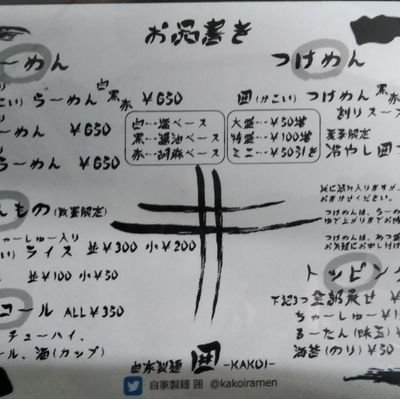 お品書き
ーめん
こい) らーめん 白 黒 赤 ¥650
らーめん ¥650
らーめん ¥650
白…塩ベース
黒…醤油ベース
赤…胡麻ベース
大盛…¥50増
特盛…¥100増
ミニ…¥50引き
つけめん
囲(かこい) つけめん 黒
割りスー
夏季限定
冷やし囲
んもの(数量限定)
ちゃーしゅー入り
い) ライス 並¥300 小¥200
並¥100 小¥50
コール ALL¥350
チューハイ、
ール、酒(カップ)
つけめんは、らーめ
ゆで上がりまでお時
つけめんは、あつ盛
お気軽にお申し付け
トッピング
下記3つ全部乗せ ¥
ちゃーしゅー ¥1
るーたん(味玉) ¥
海苔(のり) ¥50
自家製麺 囲 -KAKOI-
自家製麺 囲 @kakoiramen